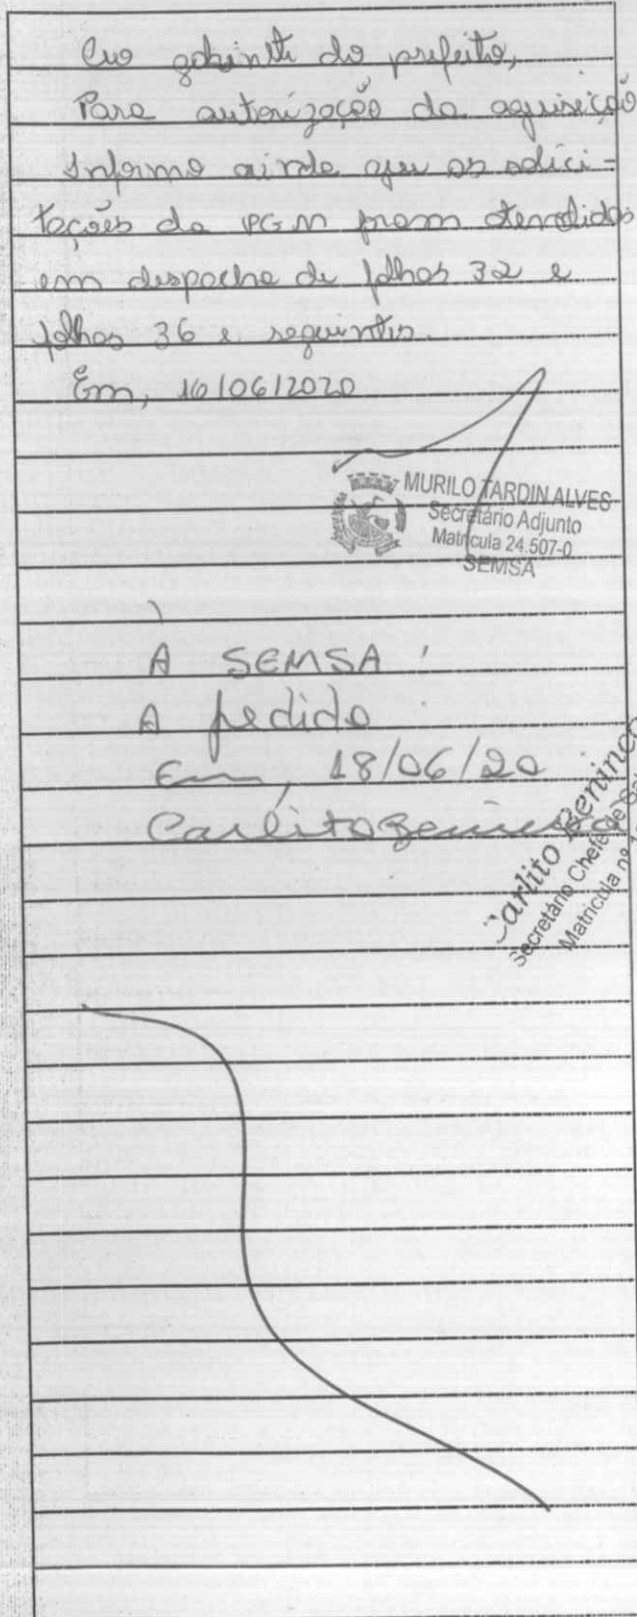 Ao gabinete do prefeito,
Para autorização da aquisição
Informo ainda que as solici-
tações da PGM foram atendidas
em despacho de folhas 32 e
folhas 36 e seguintes.
Em, 16/06/2020
MURILO TARDIN ALVES
Secretário Adjunto
Matrícula 24.507-0
SEMSA
À SEMSA:
A pedido
Em, 18/06/20
Carlito Beninca
Carlito Beninc
Secretário Chefe de
Matrícula nº